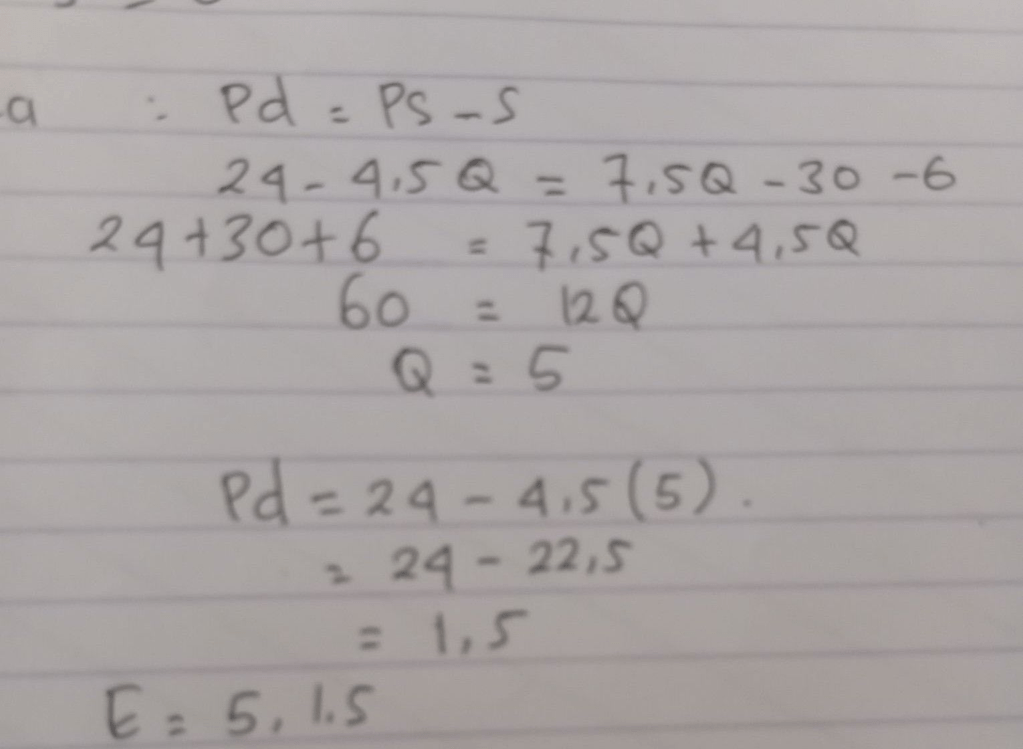 a : Pd = PS - S
24 - 4,5 Q = 7,5Q - 30 - 6
24 + 30 + 6 = 7,5Q + 4,5Q
60 = 12Q
Q = 5
Pd = 24 - 4,5 (5).
= 24 - 22,5
= 1,5
E = 5, 1.5